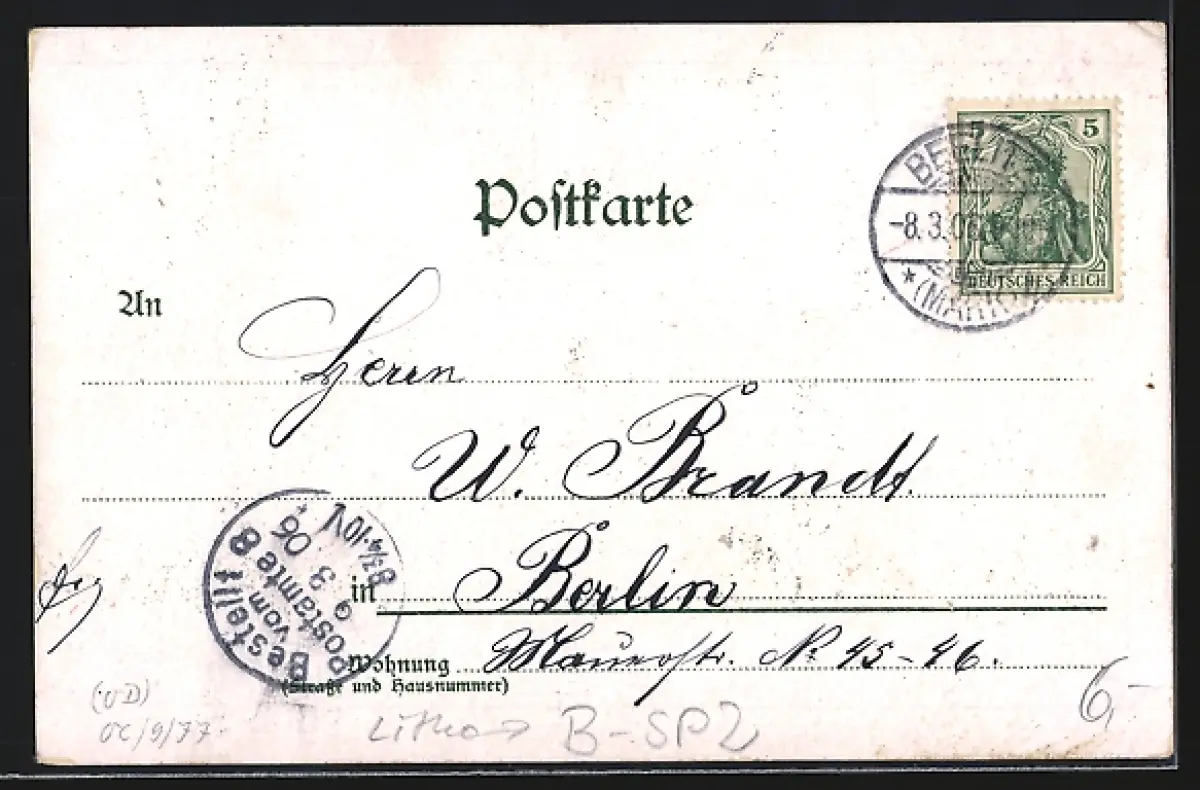 Postkarte
5 5
DEUTSCHES REICH
-8.3.06
* (MARK)
An
Herrn
W. Brandt.
in Berlin
Wohnung Mauerstr. No 45-46.
(Straße und Hausnummer)
Bestellt
vom
Postamte 8
9 3 06
9¾-10V
Litho B-SP2
6,-